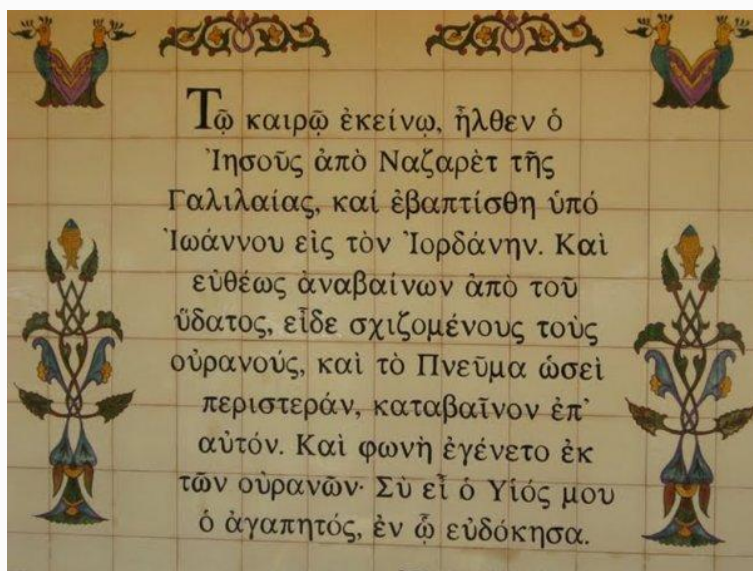 Τῷ καιρῷ ἐκείνῳ, ἦλθεν ὁ
Ἰησοῦς ἀπὸ Ναζαρὲτ τῆς
Γαλιλαίας, καί ἐβαπτίσθη ὑπό
Ἰωάννου εἰς τὸν Ἰορδάνην. Καὶ
εὐθέως ἀναβαίνων ἀπὸ τοῦ
ὕδατος, εἶδε σχιζομένους τοὺς
οὐρανούς, καὶ τὸ Πνεῦμα ὡσεὶ
περιστεράν, καταβαῖνον ἐπ’
αὐτόν. Καὶ φωνὴ ἐγένετο ἐκ
τῶν οὐρανῶν· Σὺ εἶ ὁ Υἱός μου
ὁ ἀγαπητός, ἐν ᾧ εὐδόκησα.